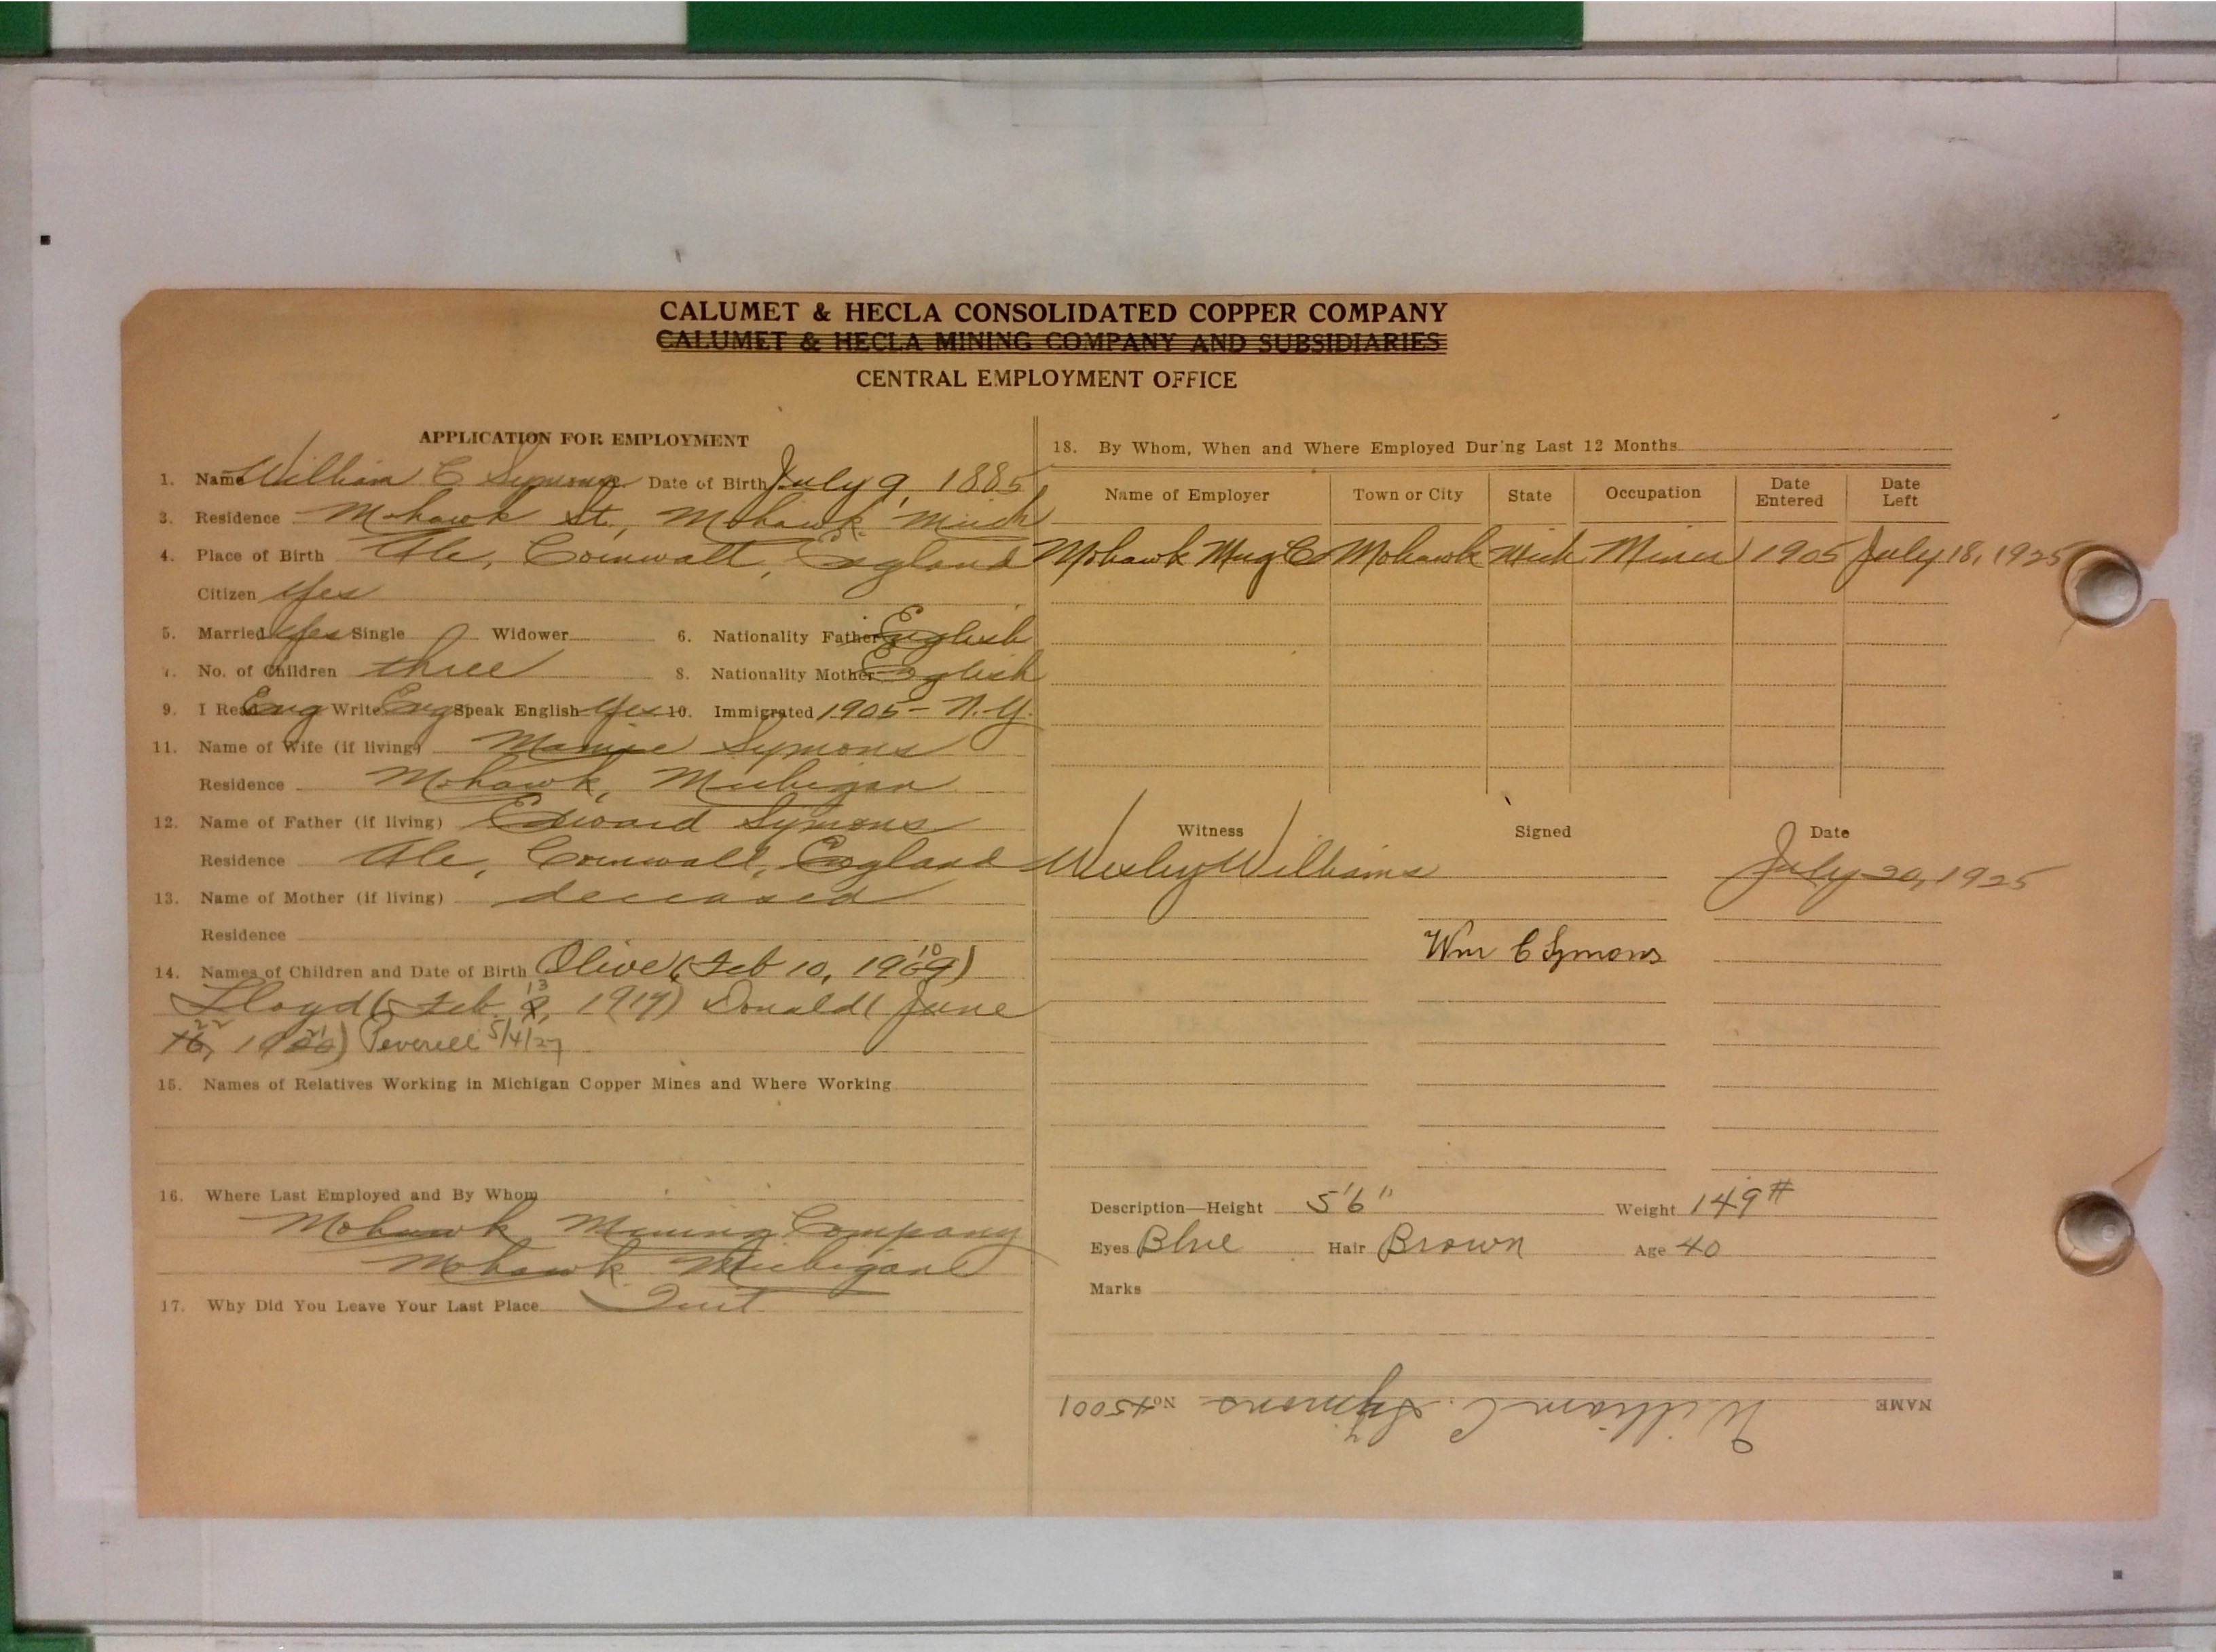 CALUMET & HECLA CONSOLIDATED COPPER COMPANY
CALUMET & HECLA MINING COMPANY AND SUBSIDIARIES
CENTRAL EMPLOYMENT OFFICE
APPLICATION FOR EMPLOYMENT
1. Name William C Symons Date of Birth July 9, 1885
3. Residence Mohawk St., Mohawk Mich
4. Place of Birth Cornwall, England
Citizen Yes
5. Married Yes Single Widower 6. Nationality Father English
7. No. of Children three 8. Nationality Mother English
9. I Read Eng Write Eng Speak English Yes 10. Immigrated 1905 - N.Y.
11. Name of Wife (if living) Mamie Symons
Residence Mohawk, Michigan
12. Name of Father (if living) Edward Symons
Residence Cornwall, England
13. Name of Mother (if living) deceased
Residence
14. Names of Children and Date of Birth Olive (Feb 10, 1909) 10
Lloyd (Feb. 13, 1914) Donald (June
22 16, 19 21) Peverell 5/4/27
15. Names of Relatives Working in Michigan Copper Mines and Where Working
16. Where Last Employed and By Whom
Mohawk Mining Company
Mohawk Michigan
17. Why Did You Leave Your Last Place Quit
18. By Whom, When and Where Employed During Last 12 Months
Name of Employer Town or City State Occupation Date Entered Date Left
Mohawk Mng Co Mohawk Mich Miner 1905 July 18, 1925
Witness Signed Date
Wesley Williams July 20, 1925
Wm C Symons
Description—Height 5'6" Weight 149#
Eyes Blue Hair Brown Age 40
Marks
NAME William C. Symons No. 45001